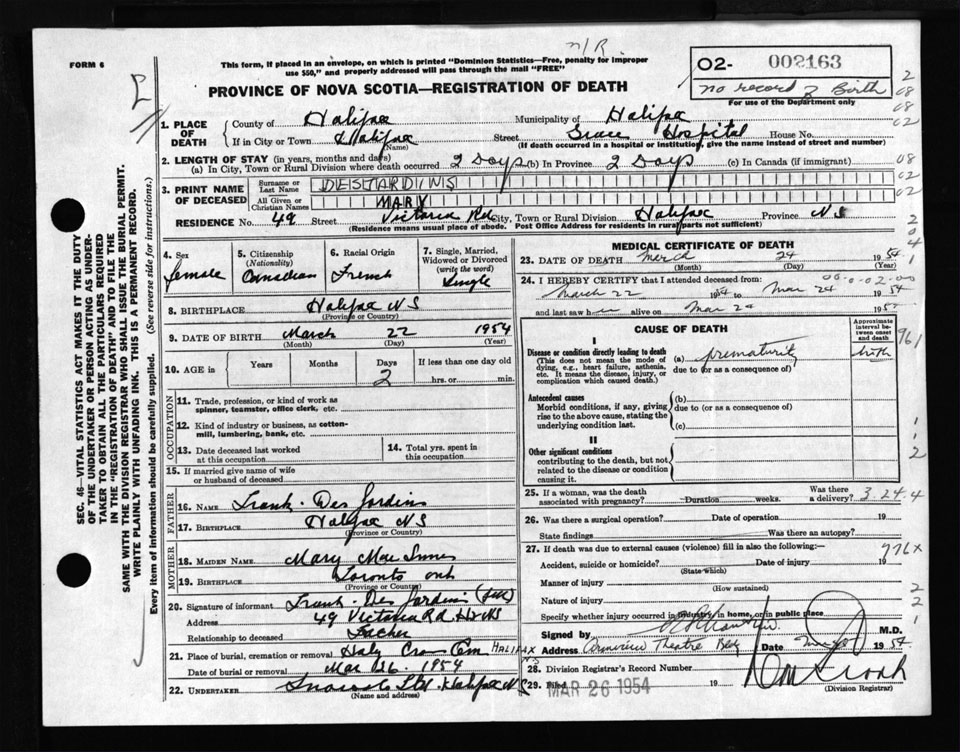 FORM 6
n/R.
This form, if placed in an envelope, on which is printed "Dominion Statistics—Free, penalty for improper
use $50," and properly addressed will pass through the mail "FREE"
02- 002163
no record of Birth
For use of the Department only
PROVINCE OF NOVA SCOTIA—REGISTRATION OF DEATH
1. PLACE OF DEATH
County of Halifax Municipality of Halifax
If in City or Town Halifax Street Grace Hospital House No.
(Name) (If death occurred in a hospital or institution, give the name instead of street and number)
2. LENGTH OF STAY (in years, months and days)
(a) In City, Town or Rural Division where death occurred 2 Days (b) In Province 2 Days (c) In Canada (if immigrant)
3. PRINT NAME OF DECEASED
Surname or Last Name DESJARDINS
All Given or Christian Names MARY
RESIDENCE No. 49 Street Victoria Rd. City, Town or Rural Division Halifax Province NS
(Residence means usual place of abode. Post Office Address for residents in rural parts not sufficient)
4. Sex
female
5. Citizenship
(Nationality)
Canadian
6. Racial Origin
French
7. Single, Married,
Widowed or Divorced
(write the word)
Single
8. BIRTHPLACE Halifax NS
(Province or Country)
9. DATE OF BIRTH March 22 1954
(Month) (Day) (Year)
10. AGE in
Years Months Days If less than one day old
2 hrs. or min.
OCCUPATION
11. Trade, profession, or kind of work as
spinner, teamster, office clerk, etc.
12. Kind of industry or business, as cotton-
mill, lumbering, bank, etc.
13. Date deceased last worked
at this occupation
14. Total yrs. spent in
this occupation
15. If married give name of wife
or husband of deceased
FATHER
16. NAME Frank Des Jardins
17. BIRTHPLACE Halifax NS
(Province or Country)
MOTHER
18. MAIDEN NAME Mary Mac Innes
19. BIRTHPLACE Toronto Ont
(Province or Country)
20. Signature of informant Frank Des Jardins
Address 49 Victoria Rd
Relationship to deceased Father
21. Place of burial, cremation or removal Holy Cross Cem HALIFAX
N.S
Date of burial or removal Mar 26. 1954
22. UNDERTAKER Snows Ltd. Halifax NS
(Name and address)
MEDICAL CERTIFICATE OF DEATH
23. DATE OF DEATH March 24 1954
(Month) (Day) (Year)
24. I HEREBY CERTIFY that I attended deceased from:
March 22 1954 to Mar 24 1954
and last saw her alive on Mar 24 195
CAUSE OF DEATH
Approximate
interval be-
tween onset
and death
I
Disease or condition directly leading to death
(This does not mean the mode of
dying, e.g., heart failure, asthenia,
etc. It means the disease, injury, or
complication which caused death.)
(a) prematurity birth
due to (or as a consequence of)
Antecedent causes
Morbid conditions, if any, giving
rise to the above cause, stating the
underlying condition last.
(b)
due to (or as a consequence of)
(c)
II
Other significant conditions
contributing to the death, but not
related to the disease or condition
causing it.
25. If a woman, was the death
associated with pregnancy? Duration weeks. Was there
a delivery? 3.24.4
26. Was there a surgical operation? Date of operation 19
State findings Was there an autopsy?
27. If death was due to external causes (violence) fill in also the following:— 776x
Accident, suicide or homicide? Date of injury 19
(State which)
Manner of injury
(How sustained)
Nature of injury
Specify whether injury occurred in industry, in home, or in public place
Signed by M.D.
Address Theatre Bldg Date 1954.
28. Division Registrar's Record Number
29. Filed MAR 26 1954 19
(Division Registrar)
SEC. 46—VITAL STATISTICS ACT MAKES IT THE DUTY
OF THE UNDERTAKER OR PERSON ACTING AS UNDER-
TAKER TO OBTAIN ALL THE PARTICULARS REQUIRED
IN THE "REGISTRATION OF DEATH" AND TO FILE THE
SAME WITH THE DIVISION REGISTRAR WHO SHALL ISSUE THE BURIAL PERMIT.
WRITE PLAINLY WITH UNFADING INK. THIS IS A PERMANENT RECORD.
Every item of information should be carefully supplied. (See reverse side for instructions.)